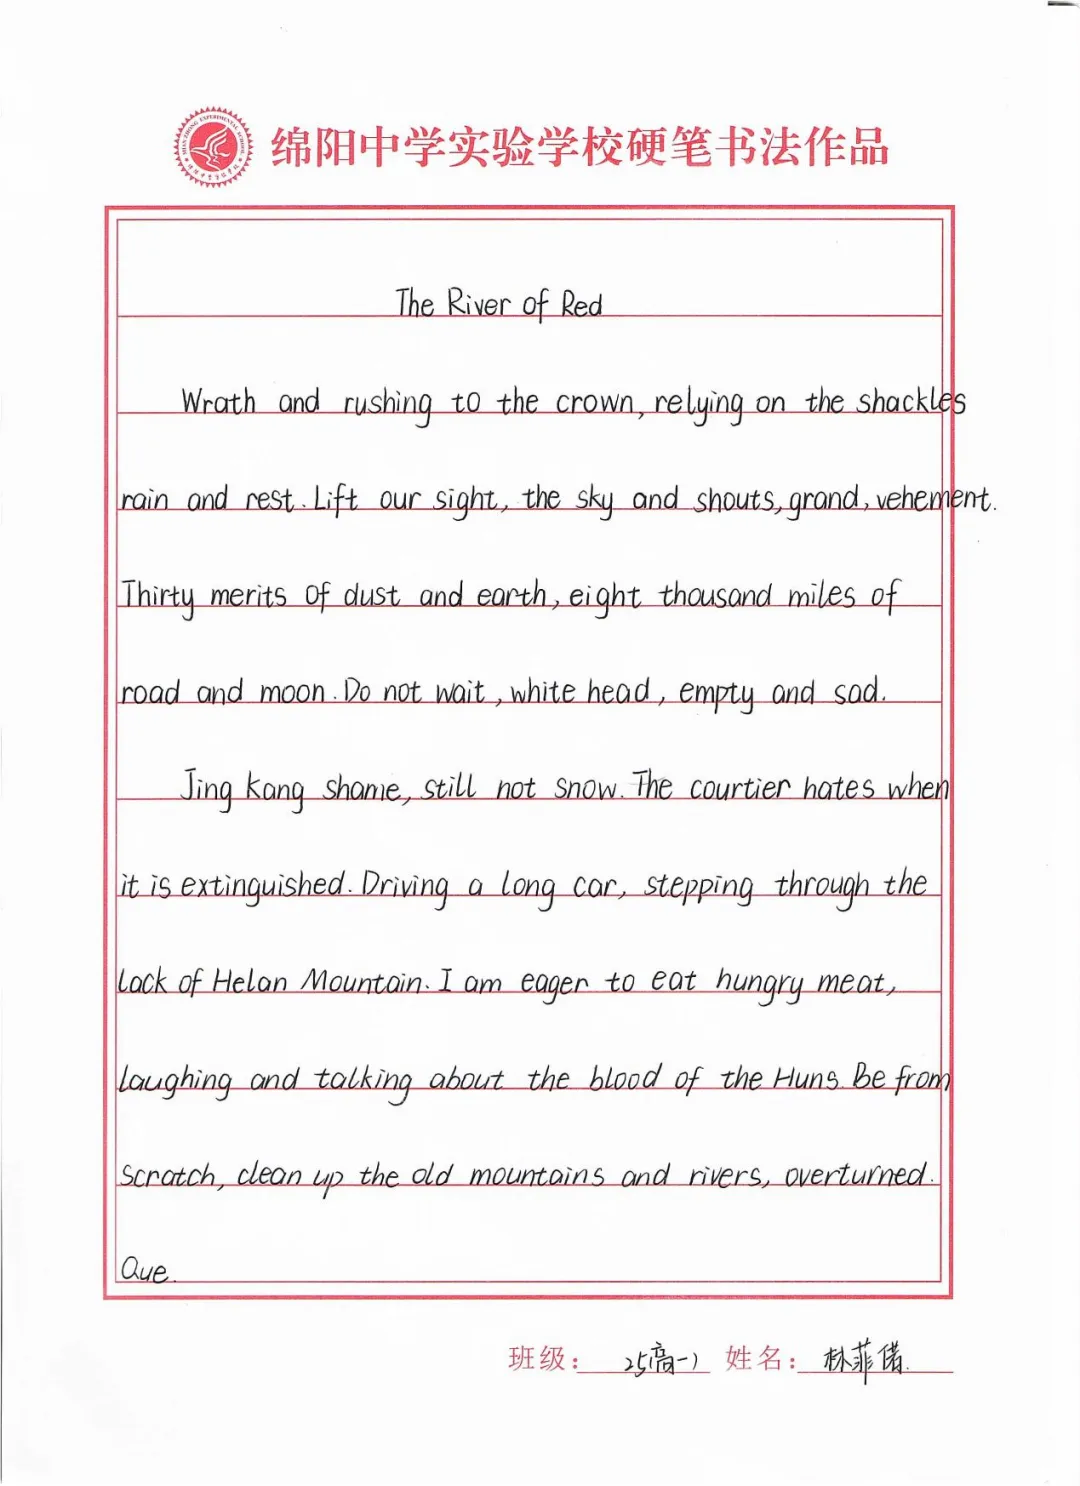 绵阳中学实验学校硬笔书法作品
The River of Red
Wrath and rushing to the crown, relying on the shackles
rain and rest. Lift our sight, the sky and shouts, grand, vehement.
Thirty merits of dust and earth, eight thousand miles of
road and moon. Do not wait, white head, empty and sad.
Jing Kang shame, still not snow. The courtier hates when
it is extinguished. Driving a long car, stepping through the
lack of Helan Mountain. I am eager to eat hungry meat,
laughing and talking about the blood of the Huns. Be from
scratch, clean up the old mountains and rivers, overturned.
Que.
班级： 25(高一) 姓名： 林菲偌.